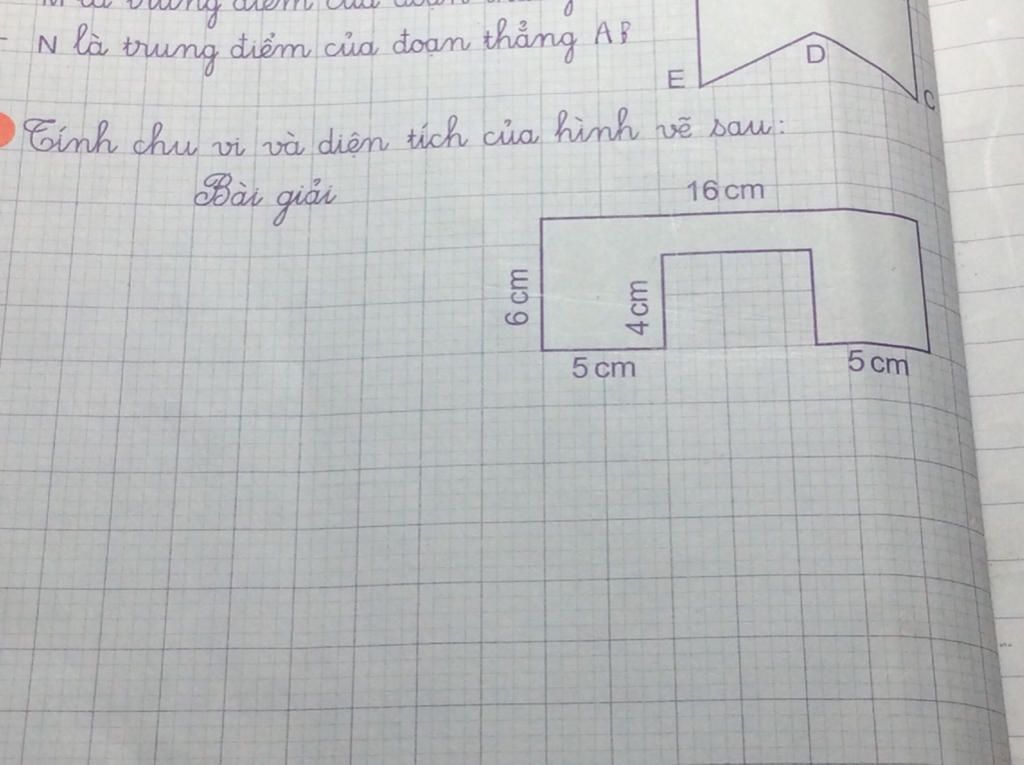 N là trung điểm của đoạn thẳng AB
E
D
C
Tính chu vi và diện tích của hình vẽ sau:
Bài giải
16 cm
6 cm
4 cm
5 cm
5 cm